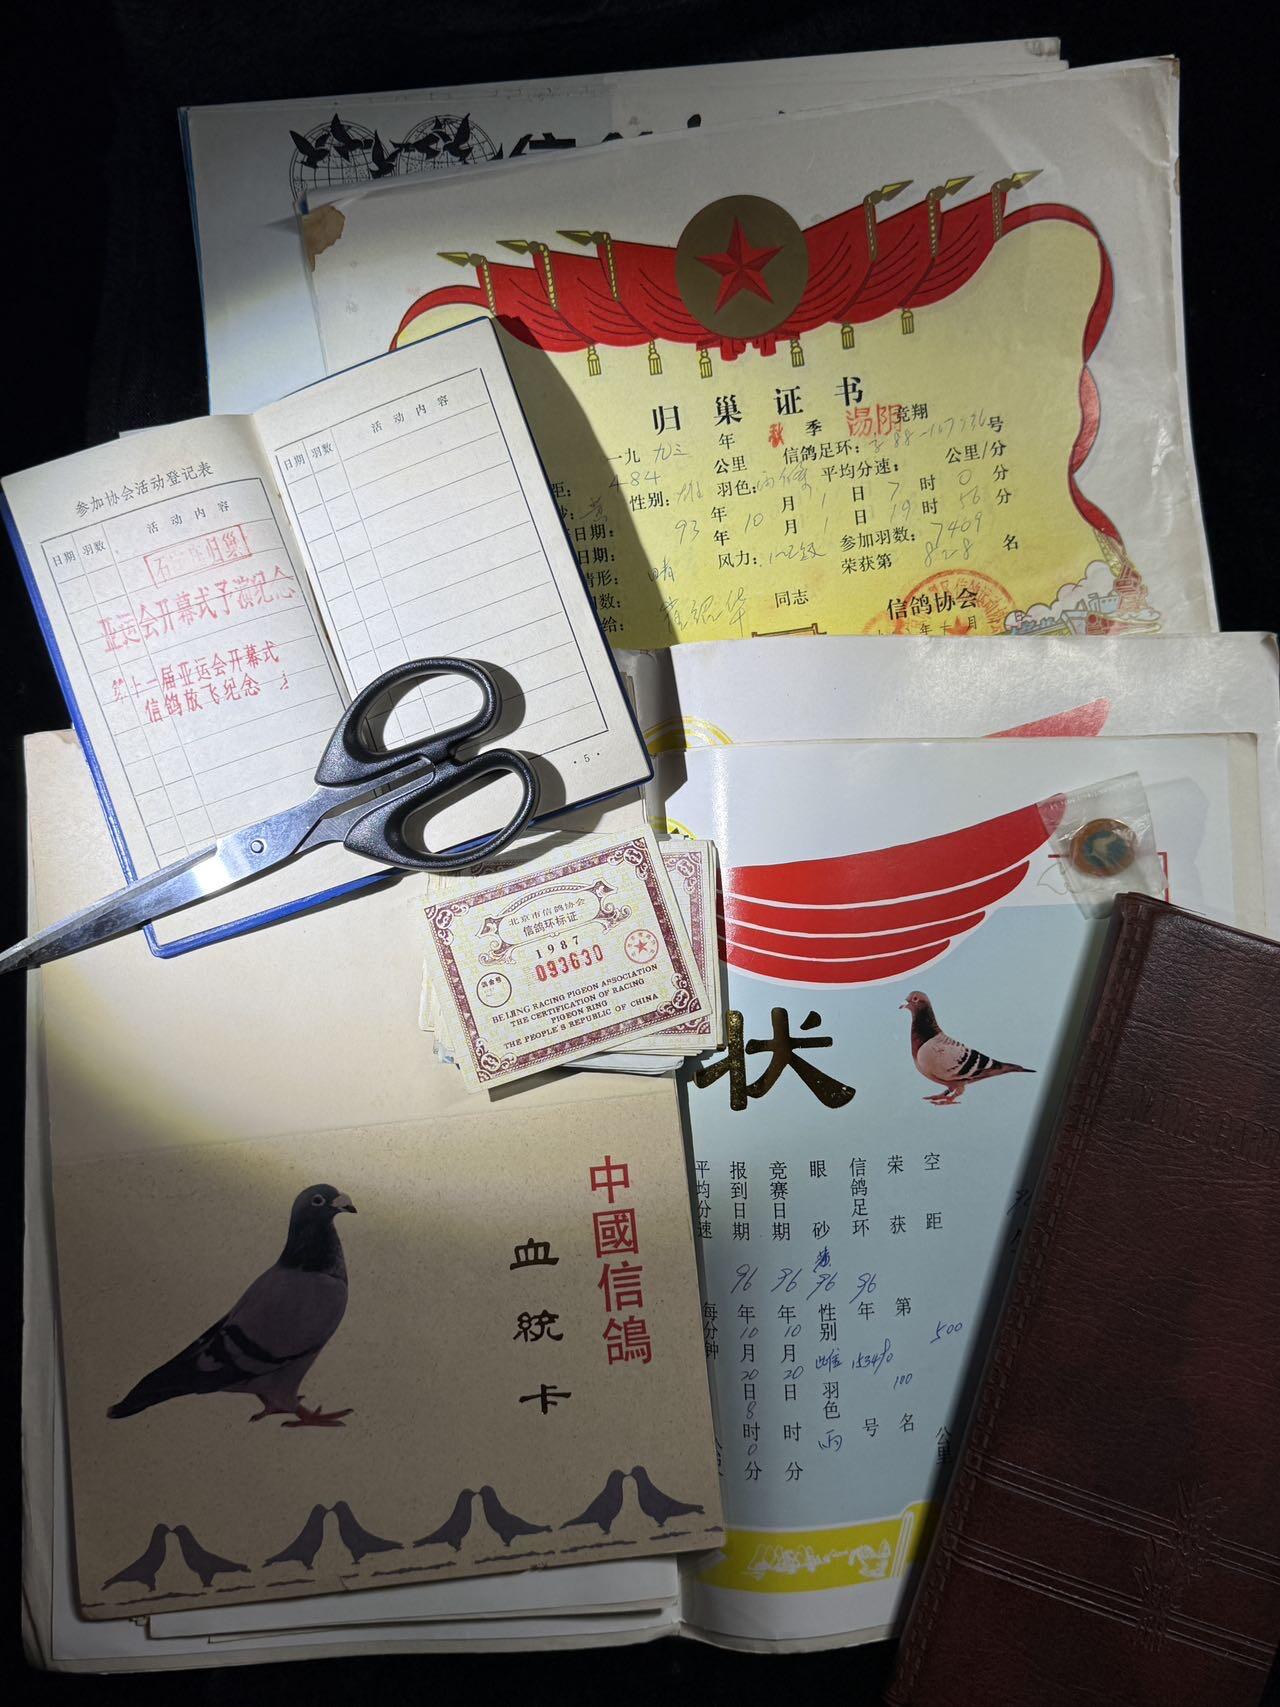 归巢证书
一九九三年秋季汤阴竞翔
484公里 信鸽足环:
号
性别:雄 羽色:
平均分速: 公里/分
年 月 日7时0分
93年10月1日19时56分
情形: 晴 风力: 参加羽数:7409
荣获第828名
同志
信鸽协会
年十月
参加协会活动登记表
日期 羽数 活动内容
归巢
亚运会开幕式予演纪念
第十一届亚运会开幕式
信鸽放飞纪念
日期 羽数 活动内容
·5·
北京市信鸽协会
信鸽环标证
1987
093630
BEIJING RACING PIGEON ASSOCIATION
THE CERTIFICATION OF RACING
PIGEON RING
THE PEOPLE'S REPUBLIC OF CHINA
状
空距 500 公里
荣获 第 100 名
信鸽足环 96年 153490 号
眼砂 黄 96 性别 雌 羽色 雨
竞赛日期 96年10月20日 时 分
报到日期 96年10月20日8时0分
平均分速 每分钟
中國信鴿
血統卡